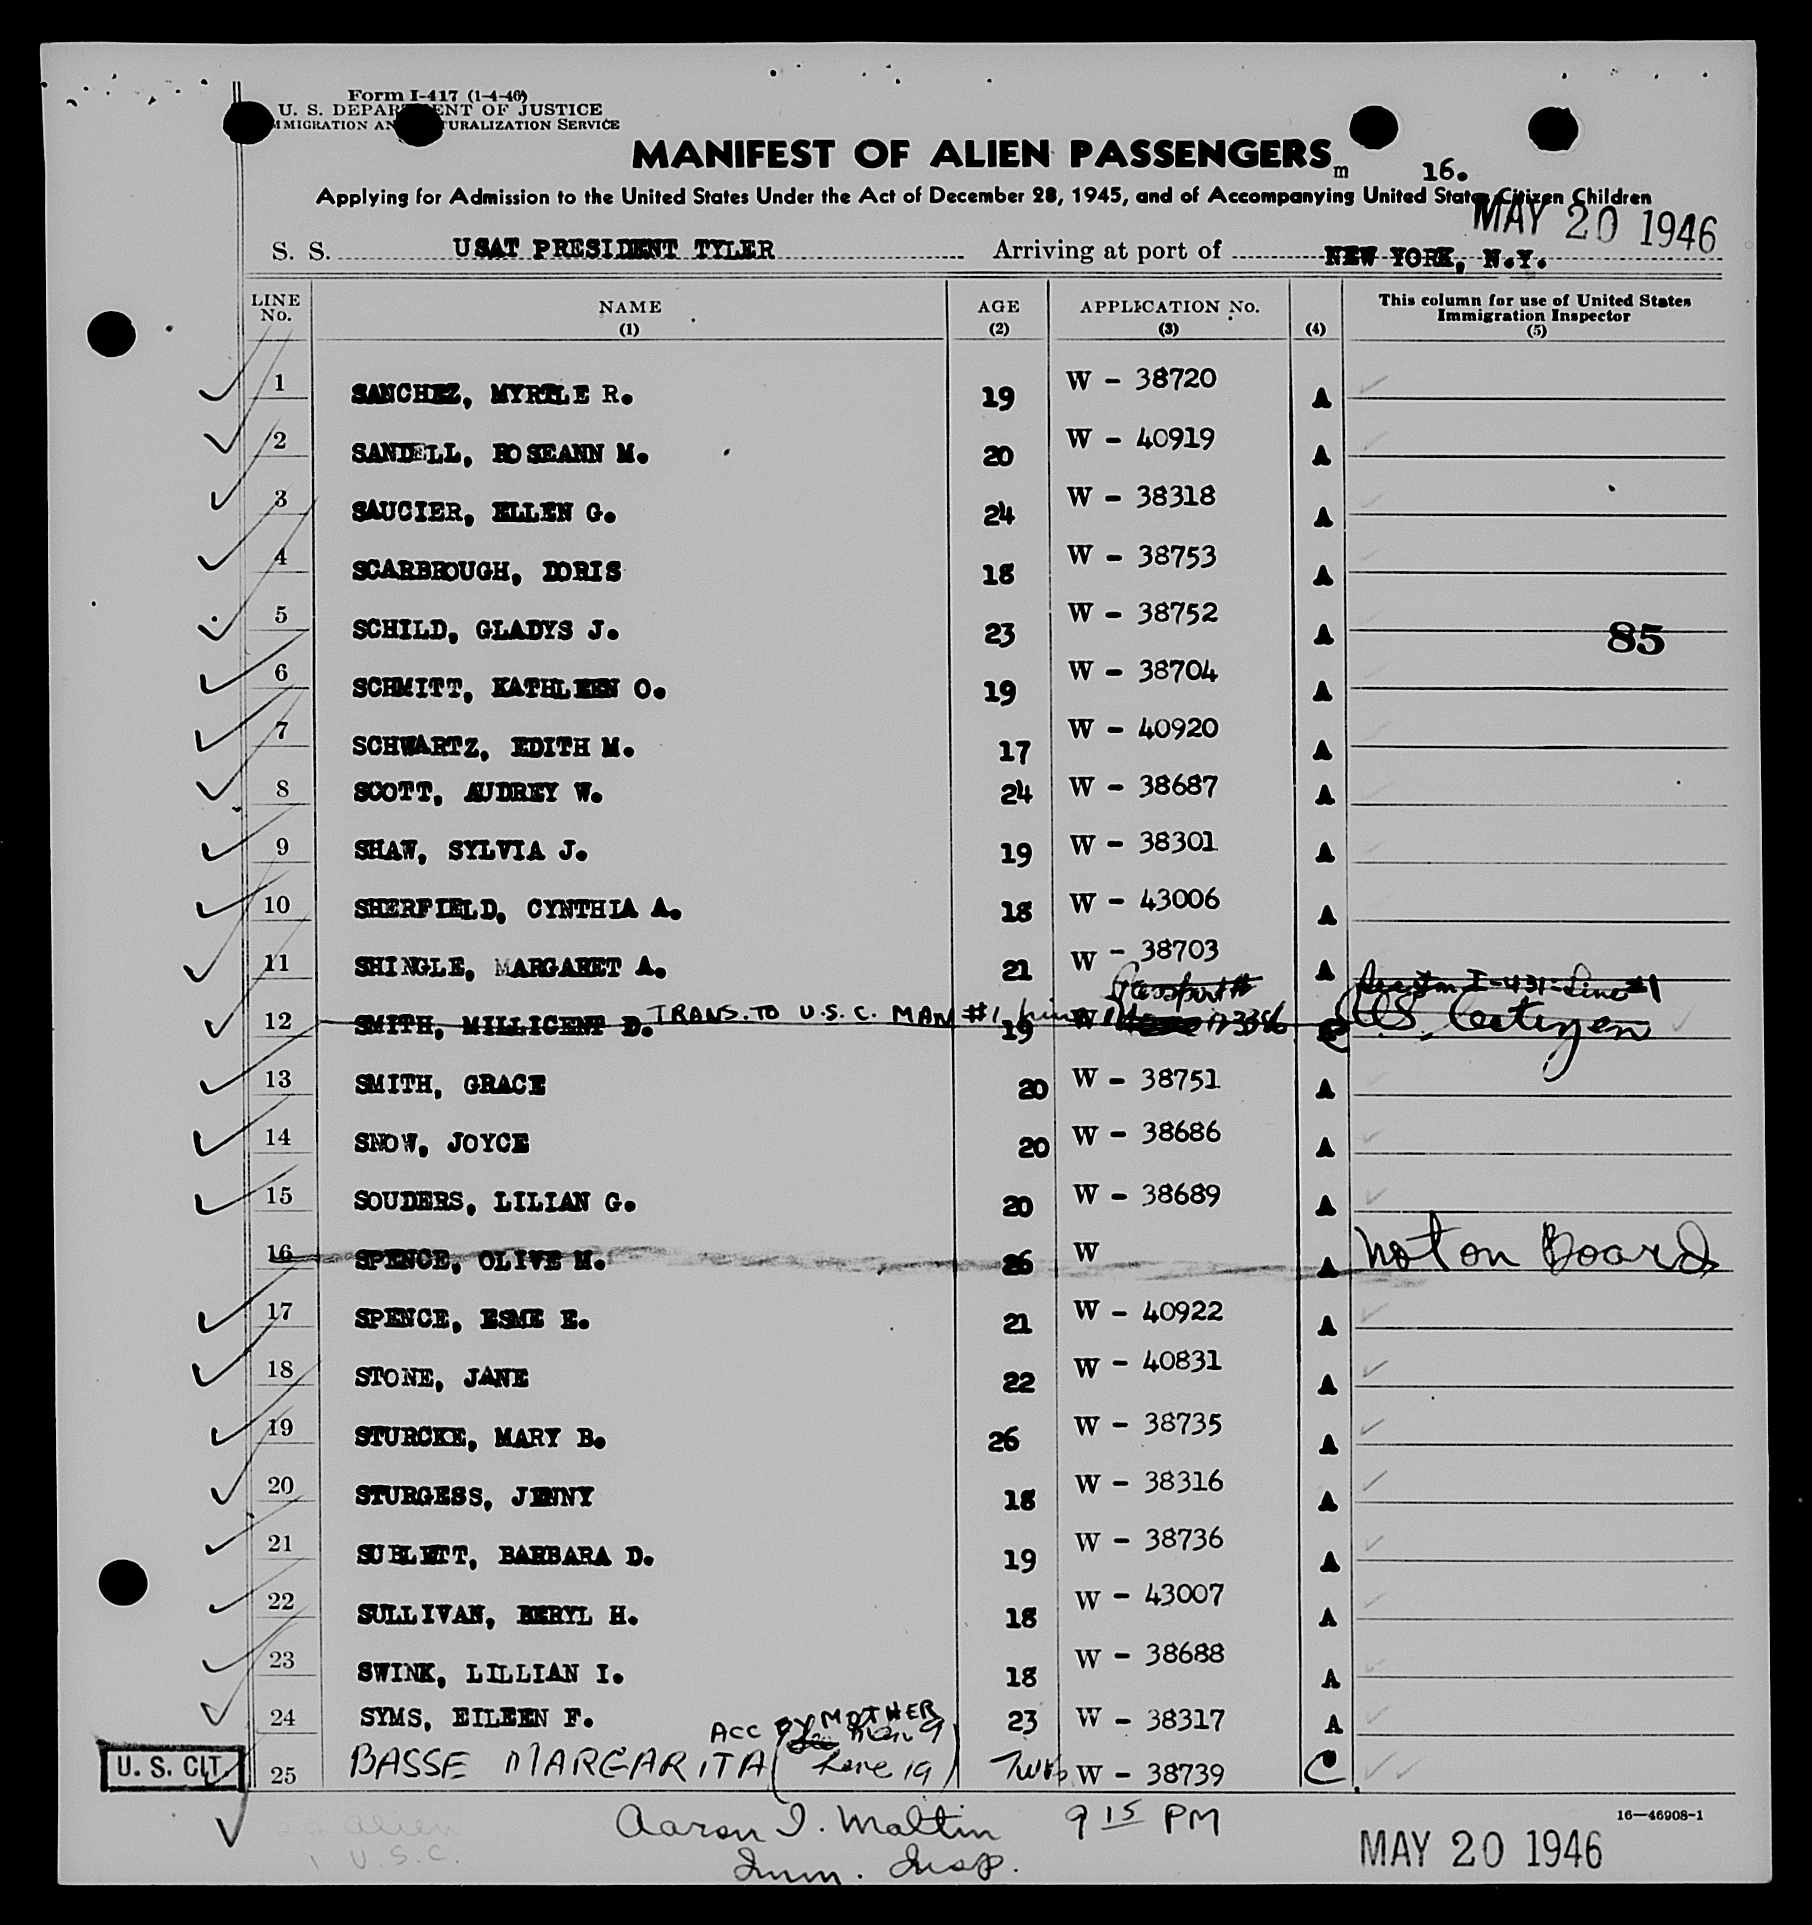 Form I-417 (1-4-46)
U. S. DEPARTMENT OF JUSTICE
IMMIGRATION AND NATURALIZATION SERVICE
MANIFEST OF ALIEN PASSENGERS m 16.
Applying for Admission to the United States Under the Act of December 28, 1945, and of Accompanying United States Citizen Children
MAY 20 1946
S. S. USAT PRESIDENT TYLER Arriving at port of NEW YORK, N.Y.
LINE No. NAME (1) AGE (2) APPLICATION No. (3) (4) This column for use of United States Immigration Inspector (5)
1 SANCHEZ, MYRTLE R. 19 W - 38720 A
2 SANDELL, ROSEANN M. 20 W - 40919 A
3 SAUCIER, ELLEN G. 24 W - 38318 A
4 SCARBROUGH, DORIS 18 W - 38753 A
5 SCHILD, GLADYS J. 23 W - 38752 A 85
6 SCHMITT, KATHLEEN O. 19 W - 38704 A
7 SCHWARTZ, EDITH M. 17 W - 40920 A
8 SCOTT, AUDREY W. 24 W - 38687 A
9 SHAW, SYLVIA J. 19 W - 38301 A
10 SHERFIELD, CYNTHIA A. 18 W - 43006 A
11 SHINGLE, MARGARET A. 21 W - 38703 A
Passport # I-431-Line #1
12 SMITH, MILLICENT D. TRANS. TO U.S.C. MAN #1 Line 1 19 W C U.S. Citizen
13 SMITH, GRACE 20 W - 38751 A
14 SNOW, JOYCE 20 W - 38686 A
15 SOUDERS, LILIAN G. 20 W - 38689 A
16 SPENCE, OLIVE M. 26 W A Not on Board
17 SPENCE, ESME E. 21 W - 40922 A
18 STONE, JANE 22 W - 40831 A
19 STURCKE, MARY B. 26 W - 38735 A
20 STURGESS, JENNY 18 W - 38316 A
21 SUBLETT, BARBARA D. 19 W - 38736 A
22 SULLIVAN, BERYL H. 18 W - 43007 A
23 SWINK, LILLIAN I. 18 W - 38688 A
24 SYMS, EILEEN F. 23 W - 38317 A
ACC BY MOTHER
U. S. CIT. 25 BASSE MARGARITA ( Line 19 ) W - 38739 C
2 alien
1 U.S.C.
Aaron I. Maltin 9 15 PM
Imm. Insp.
16—46908-1
MAY 20 1946